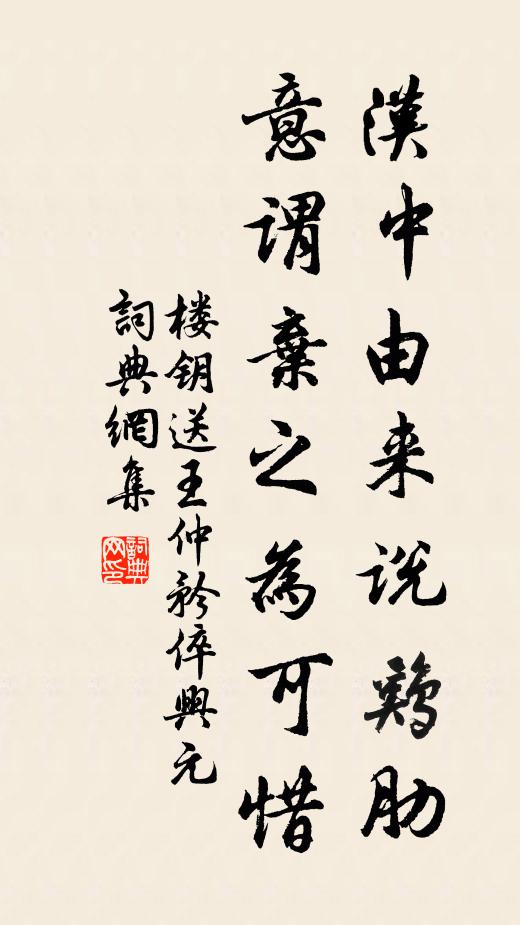 漢中由来说鷄肋
意謂棄之為可惜
楼钥送王仲矜倅興元
詞典網集
詞典網印